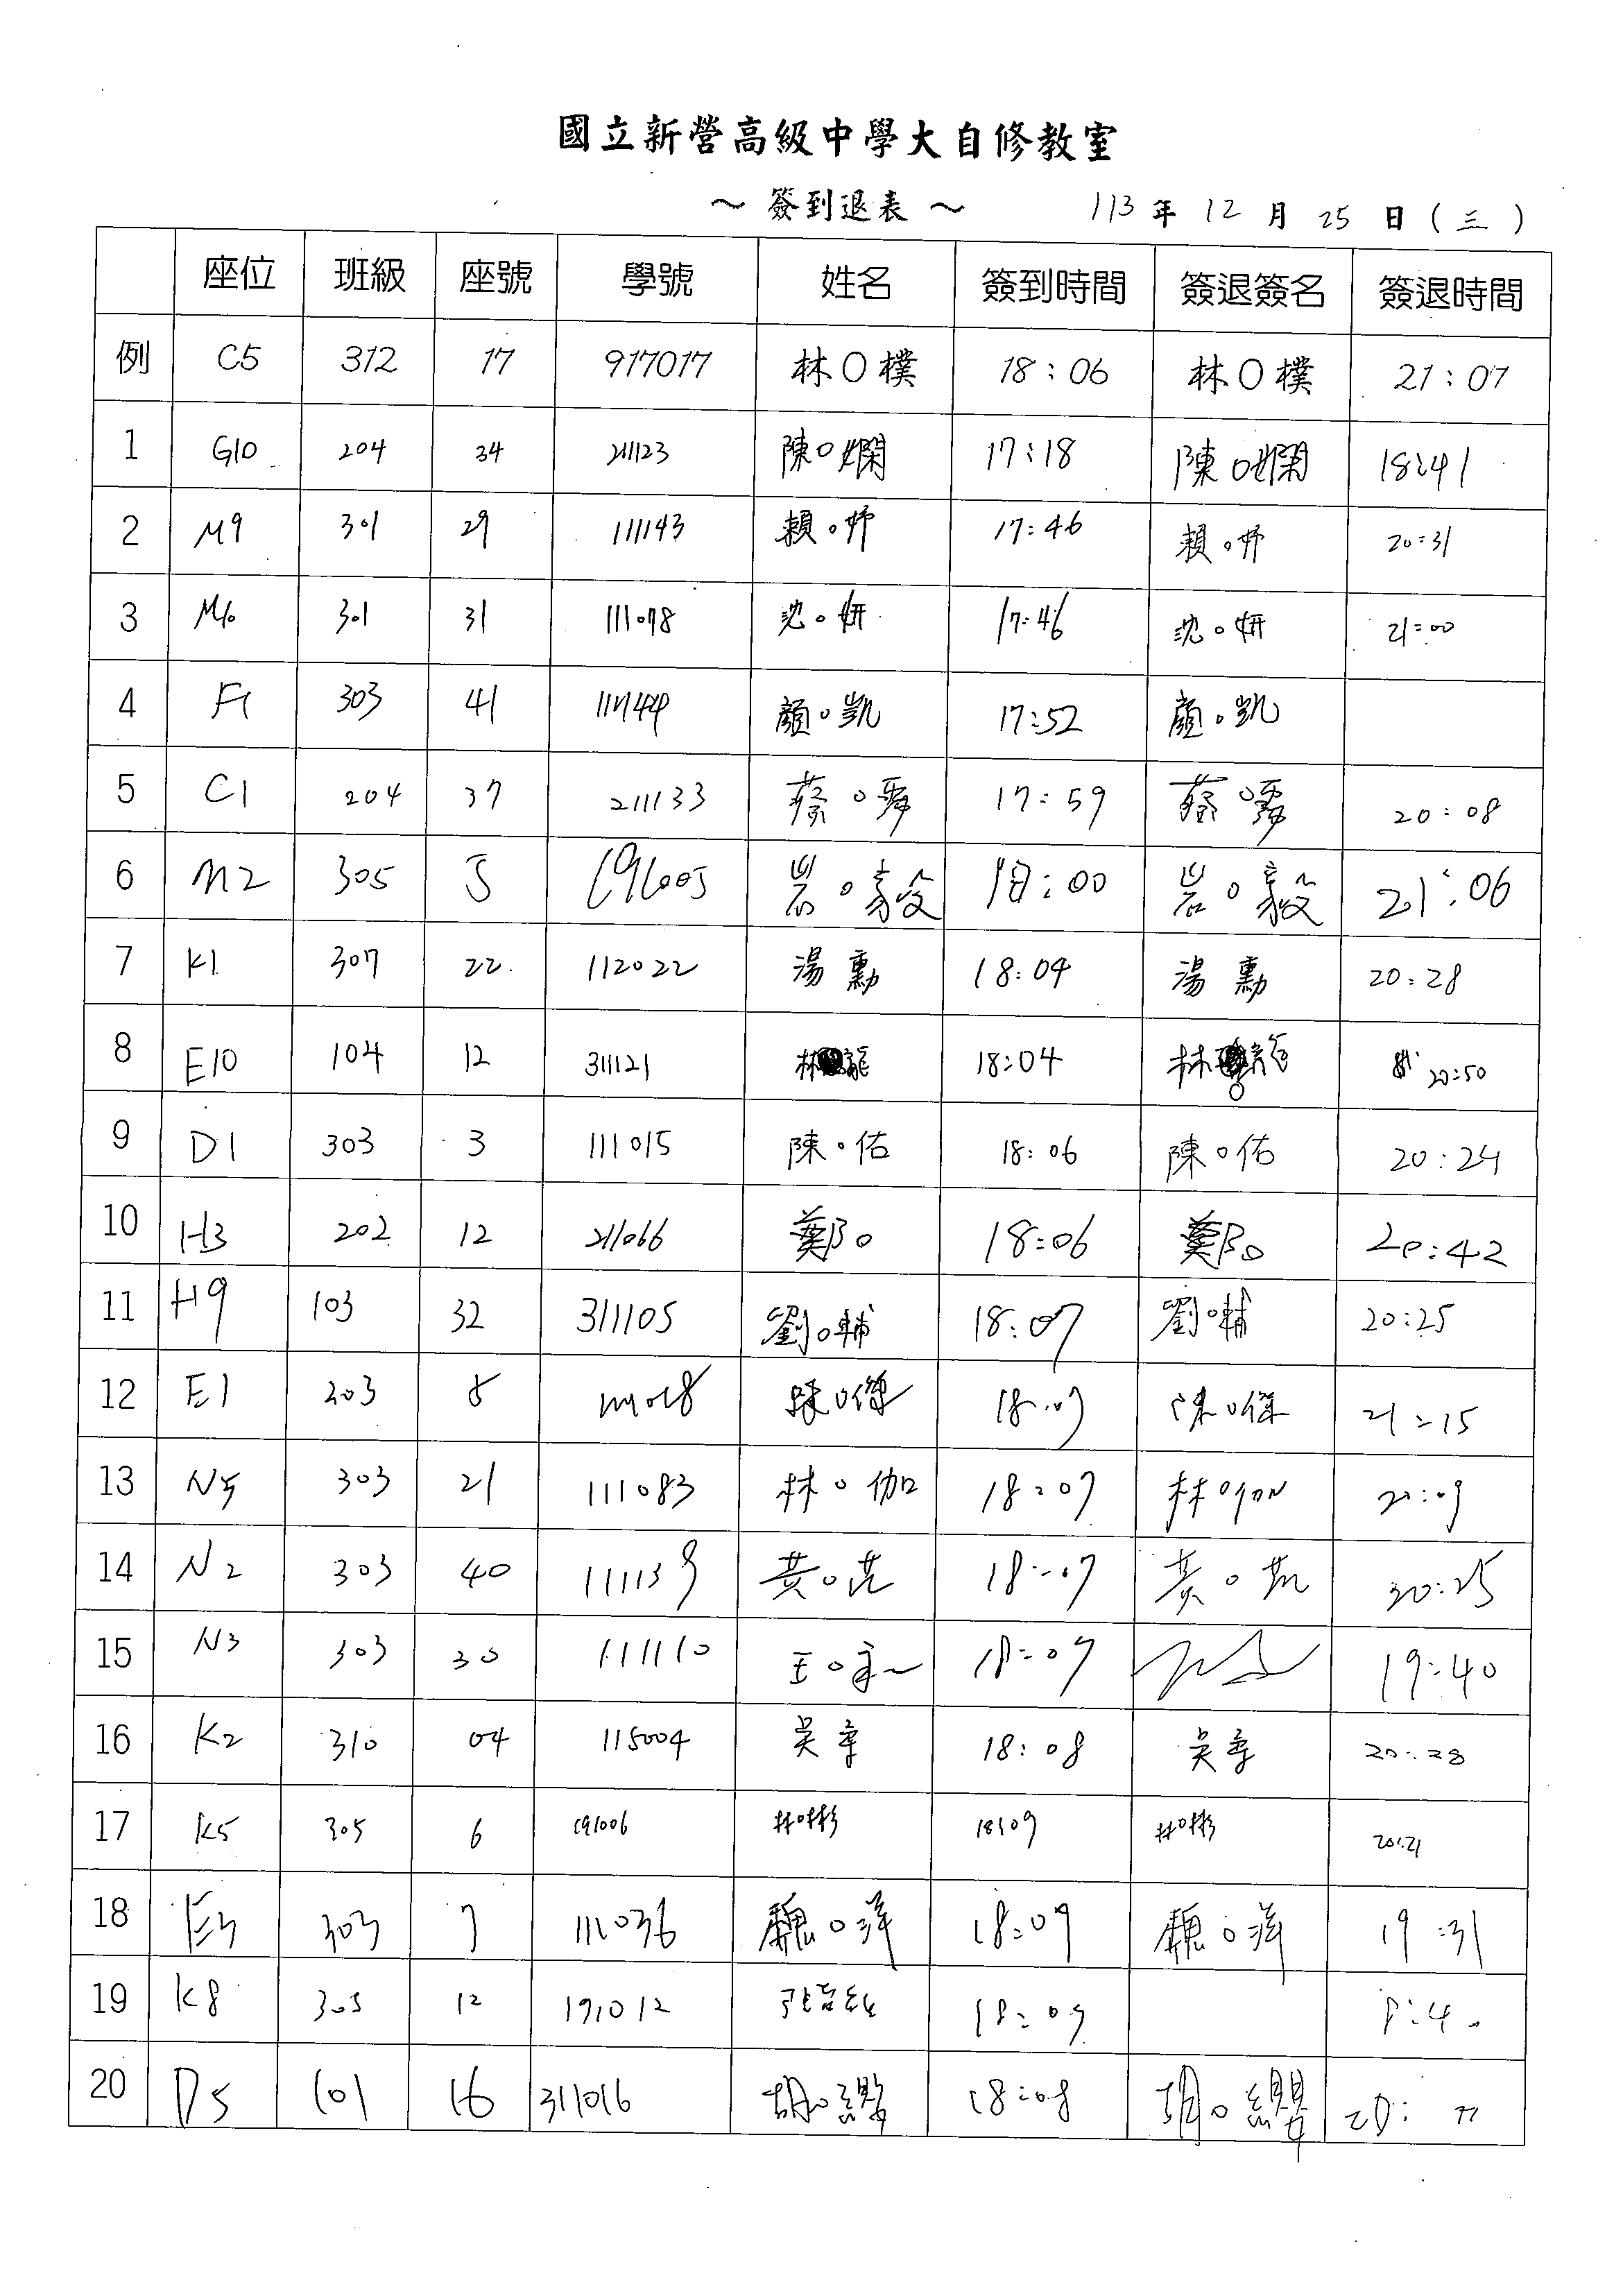 國立新營高級中學大自修教室
～ 簽到退表 ～ 113 年 12 月 25 日 ( 三 )
座位 班級 座號 學號 姓名 簽到時間 簽退簽名 簽退時間
例 C5 312 17 917017 林〇樸 18:06 林〇樸 21:07
1 G10 204 34 211123 陳〇嫻 17:18 陳〇嫻 18:41
2 M9 301 29 111143 賴〇妤 17:46 賴〇妤 20:31
3 M10 301 31 111078 沈〇妍 17:46 沈〇妍 21:00
4 F1 303 41 111144 顏〇凱 17:52 顏〇凱
5 C1 204 37 211133 蔡〇 17:59 蔡〇 20:08
6 M2 305 5 191005 岩〇毅 18:00 岩〇毅 21:06
7 K1 307 22 112022 湯 勳 18:04 湯 勳 20:28
8 E10 104 12 311121 林 龍 18:04 林 龍 20:50
9 D1 303 3 111015 陳〇佑 18:06 陳〇佑 20:24
10 H3 202 12 211066 鄭〇 18:06 鄭〇 20:42
11 H9 103 32 311105 劉〇輔 18:07 劉〇輔 20:25
12 E1 203 8 陳〇傑 18:07 陳〇傑 21:15
13 N5 303 21 111083 林〇伽 18:07 林〇伽 20:09
14 N2 303 40 111139 黃〇 18:07 黃〇 20:25
15 N3 303 30 111110 王〇 18:07 19:40
16 K2 310 04 115004 吳 18:08 吳 20:28
17 K5 305 6 191006 林〇彬 18:09 林〇彬 20:21
18 E3 303 7 111036 魏〇洋 18:09 魏〇洋 19:31
19 K8 305 12 191012 18:09
20 D5 101 16 311016 胡〇 18:08 胡〇 20: